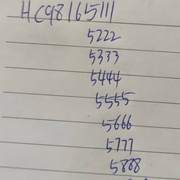 HC98165111
5222
5333
5444
5555
5666
5777
5888